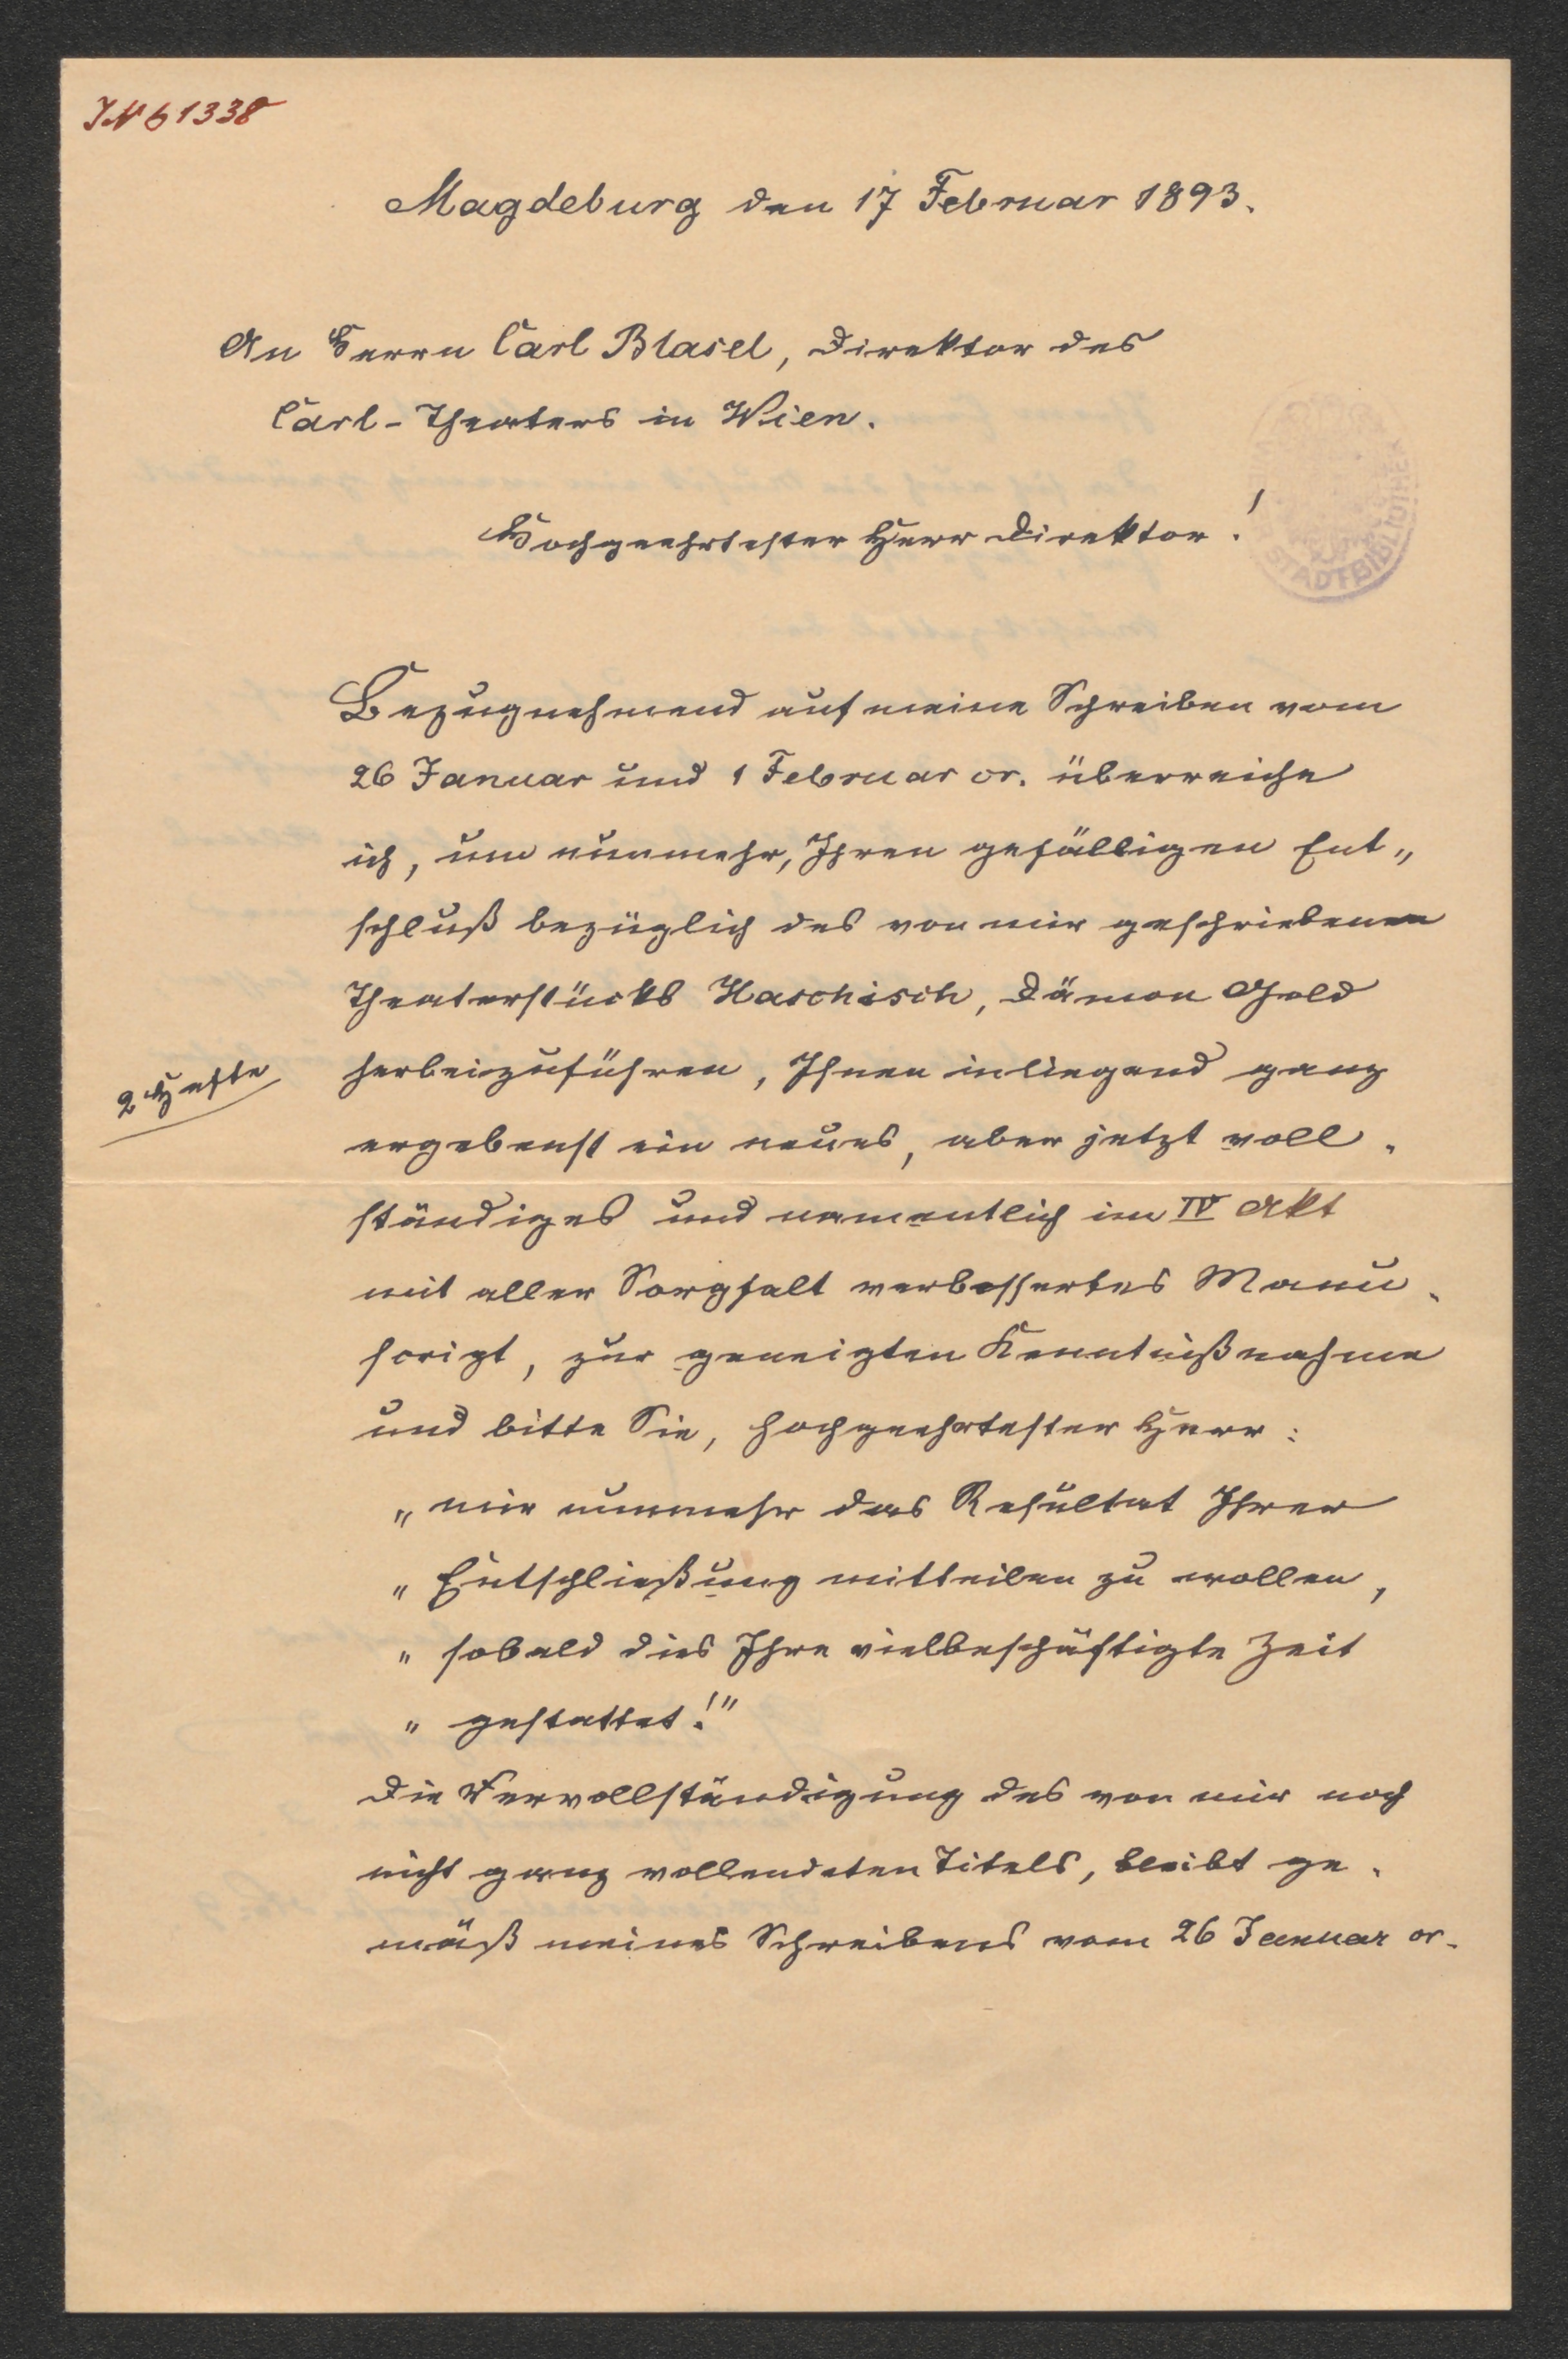 JN 61338
Magdeburg den 17 Februar 1893.
An Herrn Carl Blasel, Direktor des
Carl-Theaters in Wien.
Hochgeehrtester Herr Direktor!
STADTBIBLIOTHEK
Bezugnehmend auf meine Schreiben vom
26 Januar und 1 Februar cr. überreiche
ich, um nunmehr, Ihren gefälligen Ent„
schluß bezüglich des von mir geschriebenen
Theaterstücks Haschisch, Dämon Gold
2 Hefte
herbeizuführen, Ihnen inliegend ganz
ergebenst ein neues, aber jetzt voll-
ständiges und namentlich im IV Akt
mit aller Sorgfalt verbessertes Manu-
script, zur geneigten Kenntnißnahme
und bitte Sie, hochgeehrtester Herr:
„mir nunmehr das Resultat Ihrer
„Entschließung mitteilen zu wollen,
„sobald dies Ihre vielbeschäftigte Zeit
„gestattet!"
Die Vervollständigung des von mir noch
nicht ganz vollendeten Titels, bleibt ge-
mäß meines Schreibens vom 26 Januar cr.